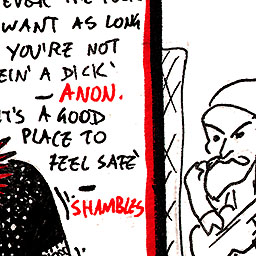 WANT AS LONG
YOU'RE NOT
EIN' A DICK'
— ANON.
T'S A GOOD
PLACE TO
FEEL SAFE'
—
'SHAMBLES